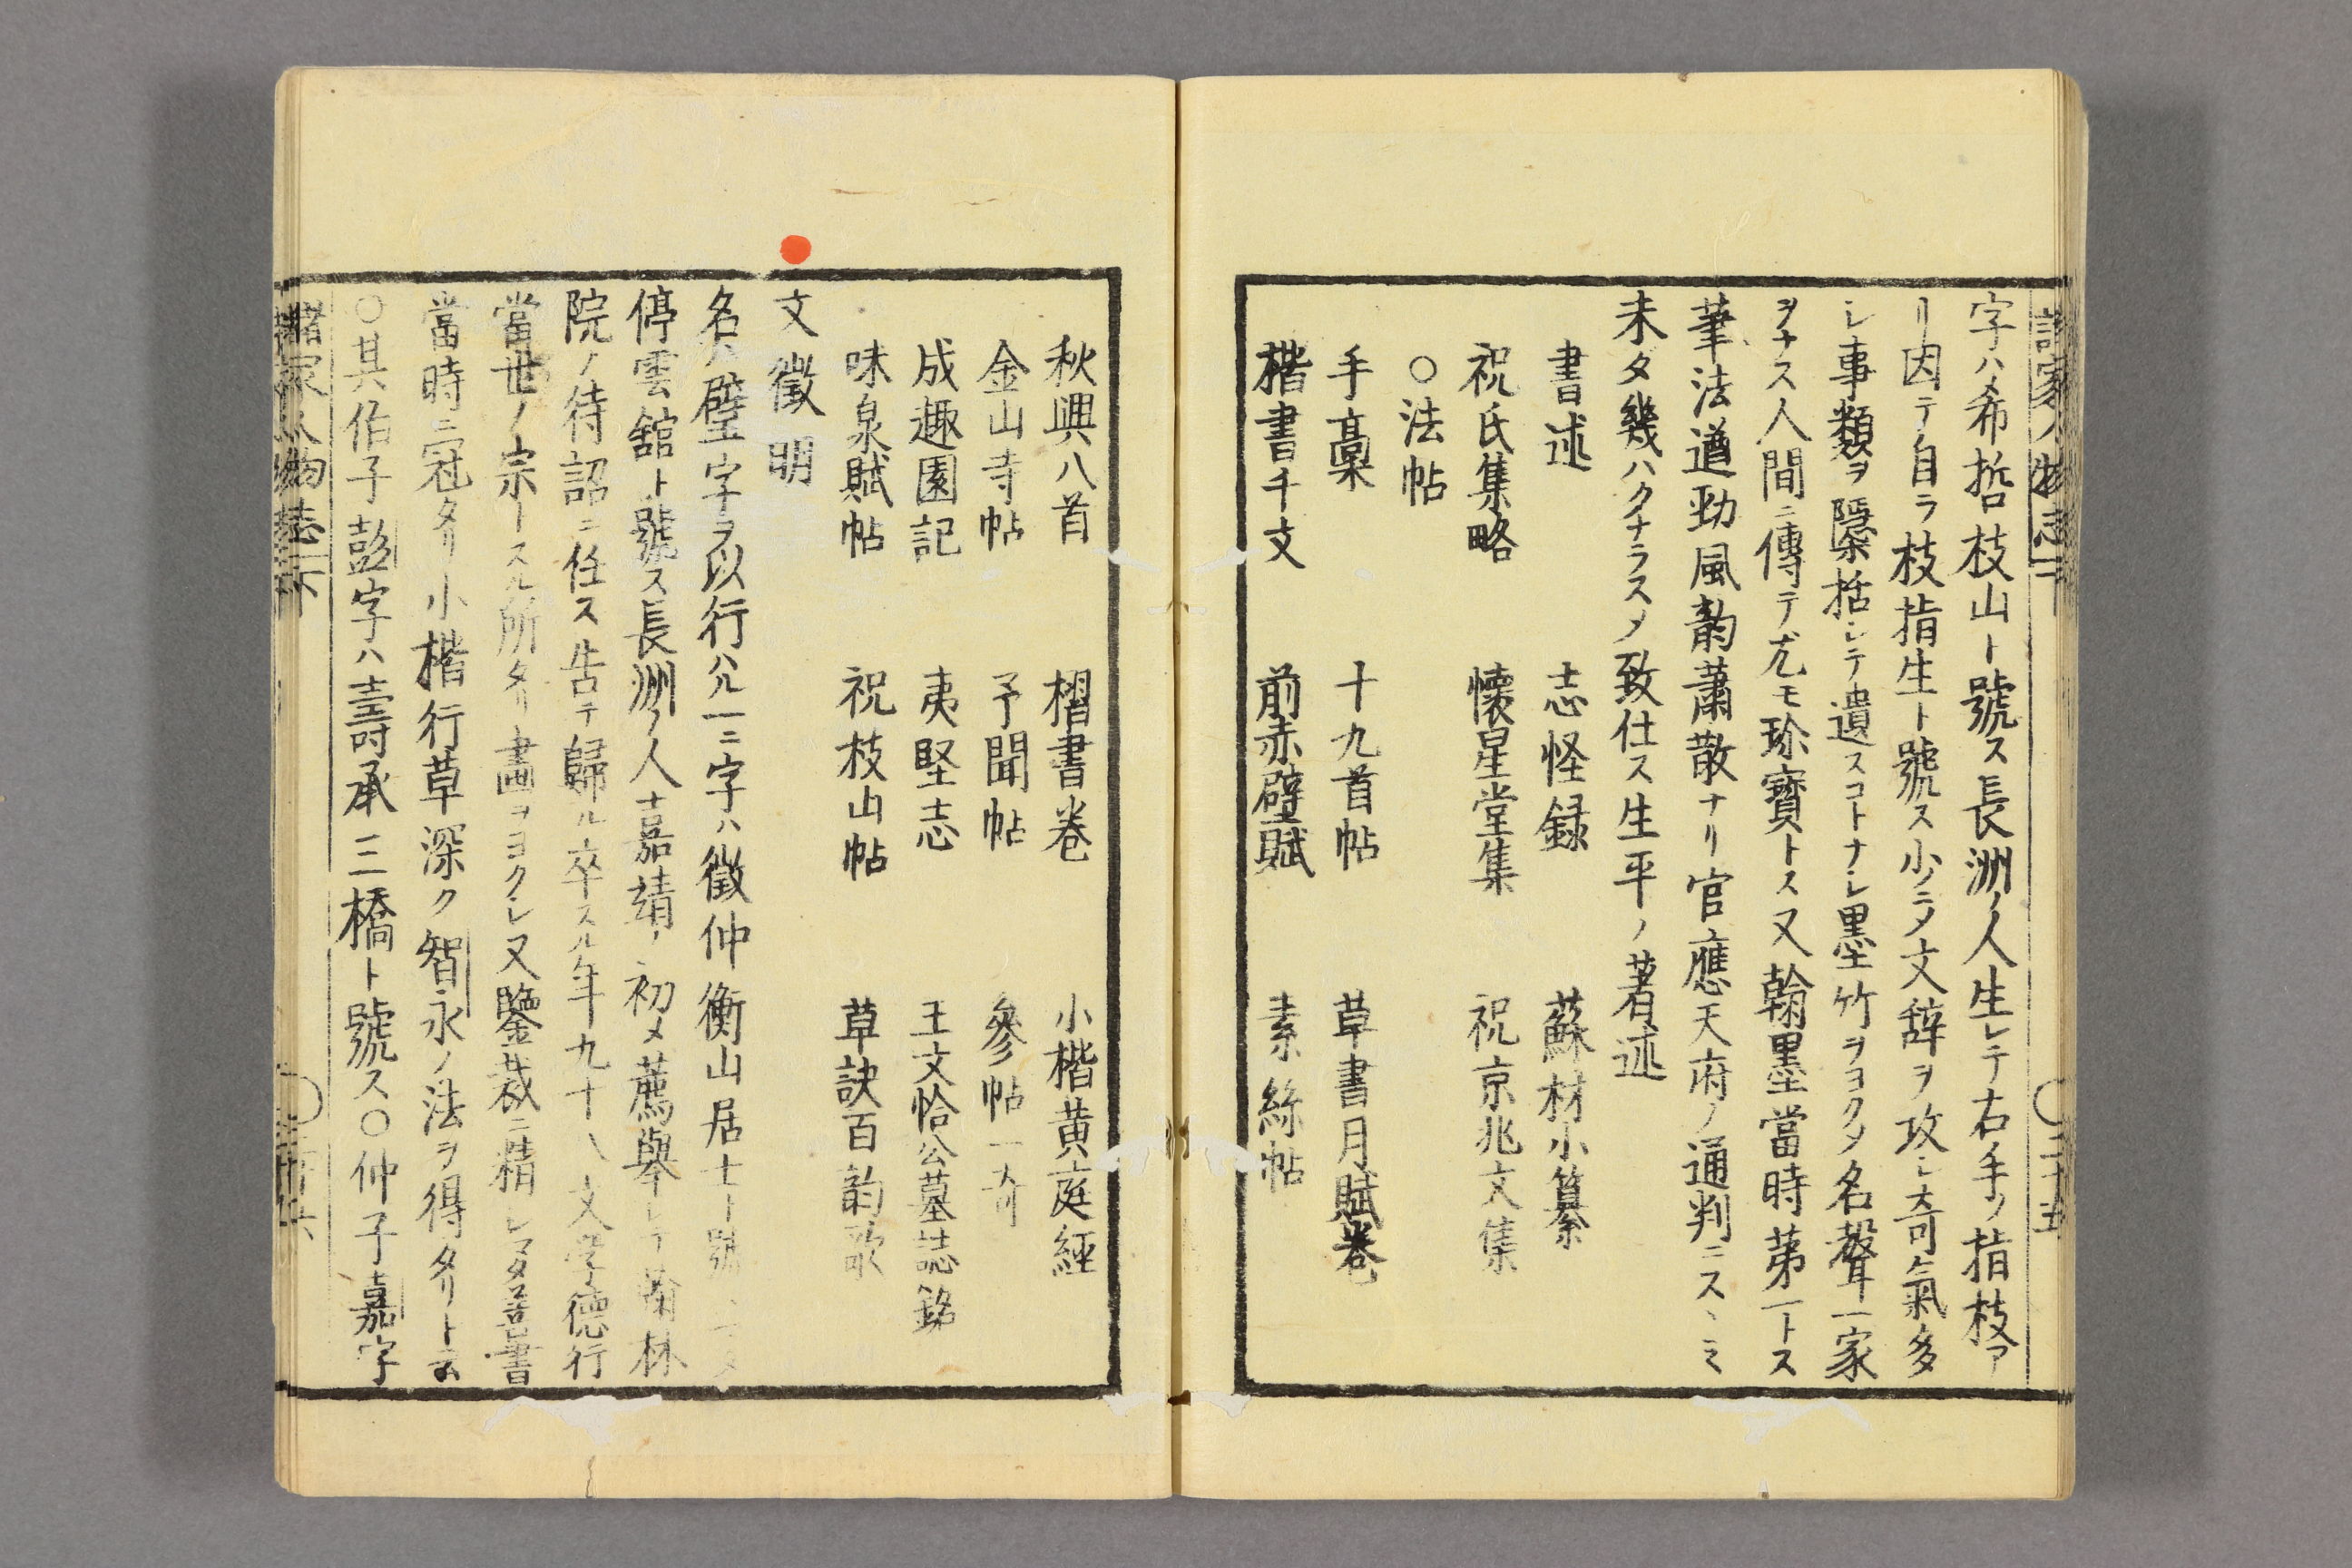 諸家人物志下 三十五
字ハ希哲枝山ト號ス長洲ノ人生レテ右手ノ指枝ア
リ因テ自ラ枝指生ト號ス少ニメ文辞ヲ攻レ奇氣多
レ事類ヲ隱括レテ遺スコトナレ墨竹ヲヨクメ名聲一家
ヲナス人間ニ傳テ尤モ珍寶トス又翰墨當時第一トス
筆法遒勁風韵蕭散ナリ官應天府ノ通判ニスヽミ
未タ幾ハクナラスメ致仕ス生平ノ著述
書述 志怪録 蘇材小纂
祝氏集略 懐星堂集 祝京兆文集
○法帖
手稾 十九首帖 草書月賦巻
楷書千文 前赤壁賦 素絲帖
秋興八首 榴書巻 小楷黄庭經
金山寺帖 予聞帖 參帖一奇
成趣園記 夷堅志 王文恰公墓誌銘
味泉賦帖 祝枝山帖 草訣百韵歌
文徴明
名ハ璧字ヲ以行ハル一ニ字ハ徴仲衡山居士ト號
停雲舘ト號ス長洲ノ人嘉靖ノ初メ薦舉レテ翰林
院ノ待詔ニ任ス告テ歸ル卒スル年九十八文学徳行
當世ノ宗トスル所タリ畫ヲヨクレ又鑒裁ニ精レマタ善書
當時ニ冠タリ小楷行草深ク智永ノ法ヲ得タリト云
○其伯子彭字ハ壽承三橋ト號ス○仲子嘉字
諸家人物志下